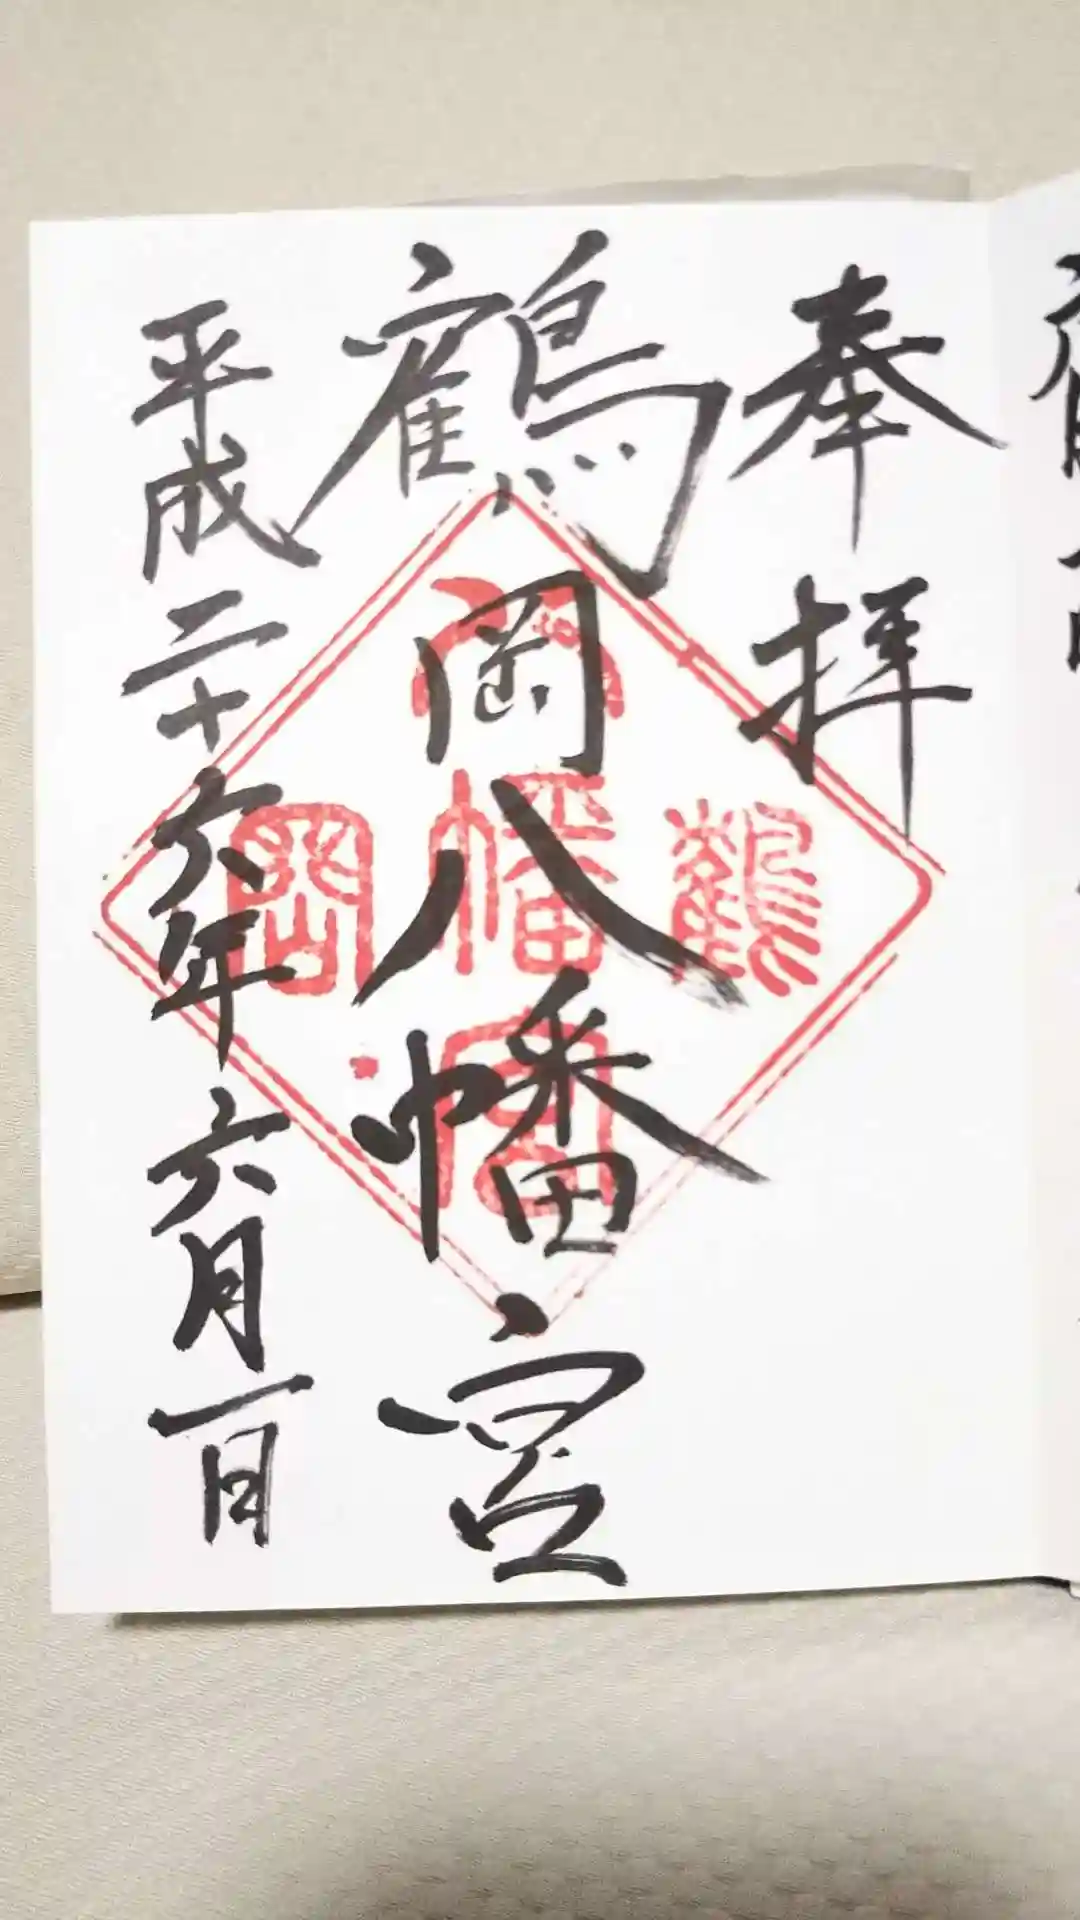 奉拝
鶴岡八幡宮
平成二十六年六月一日
八
鶴幡岡
宮